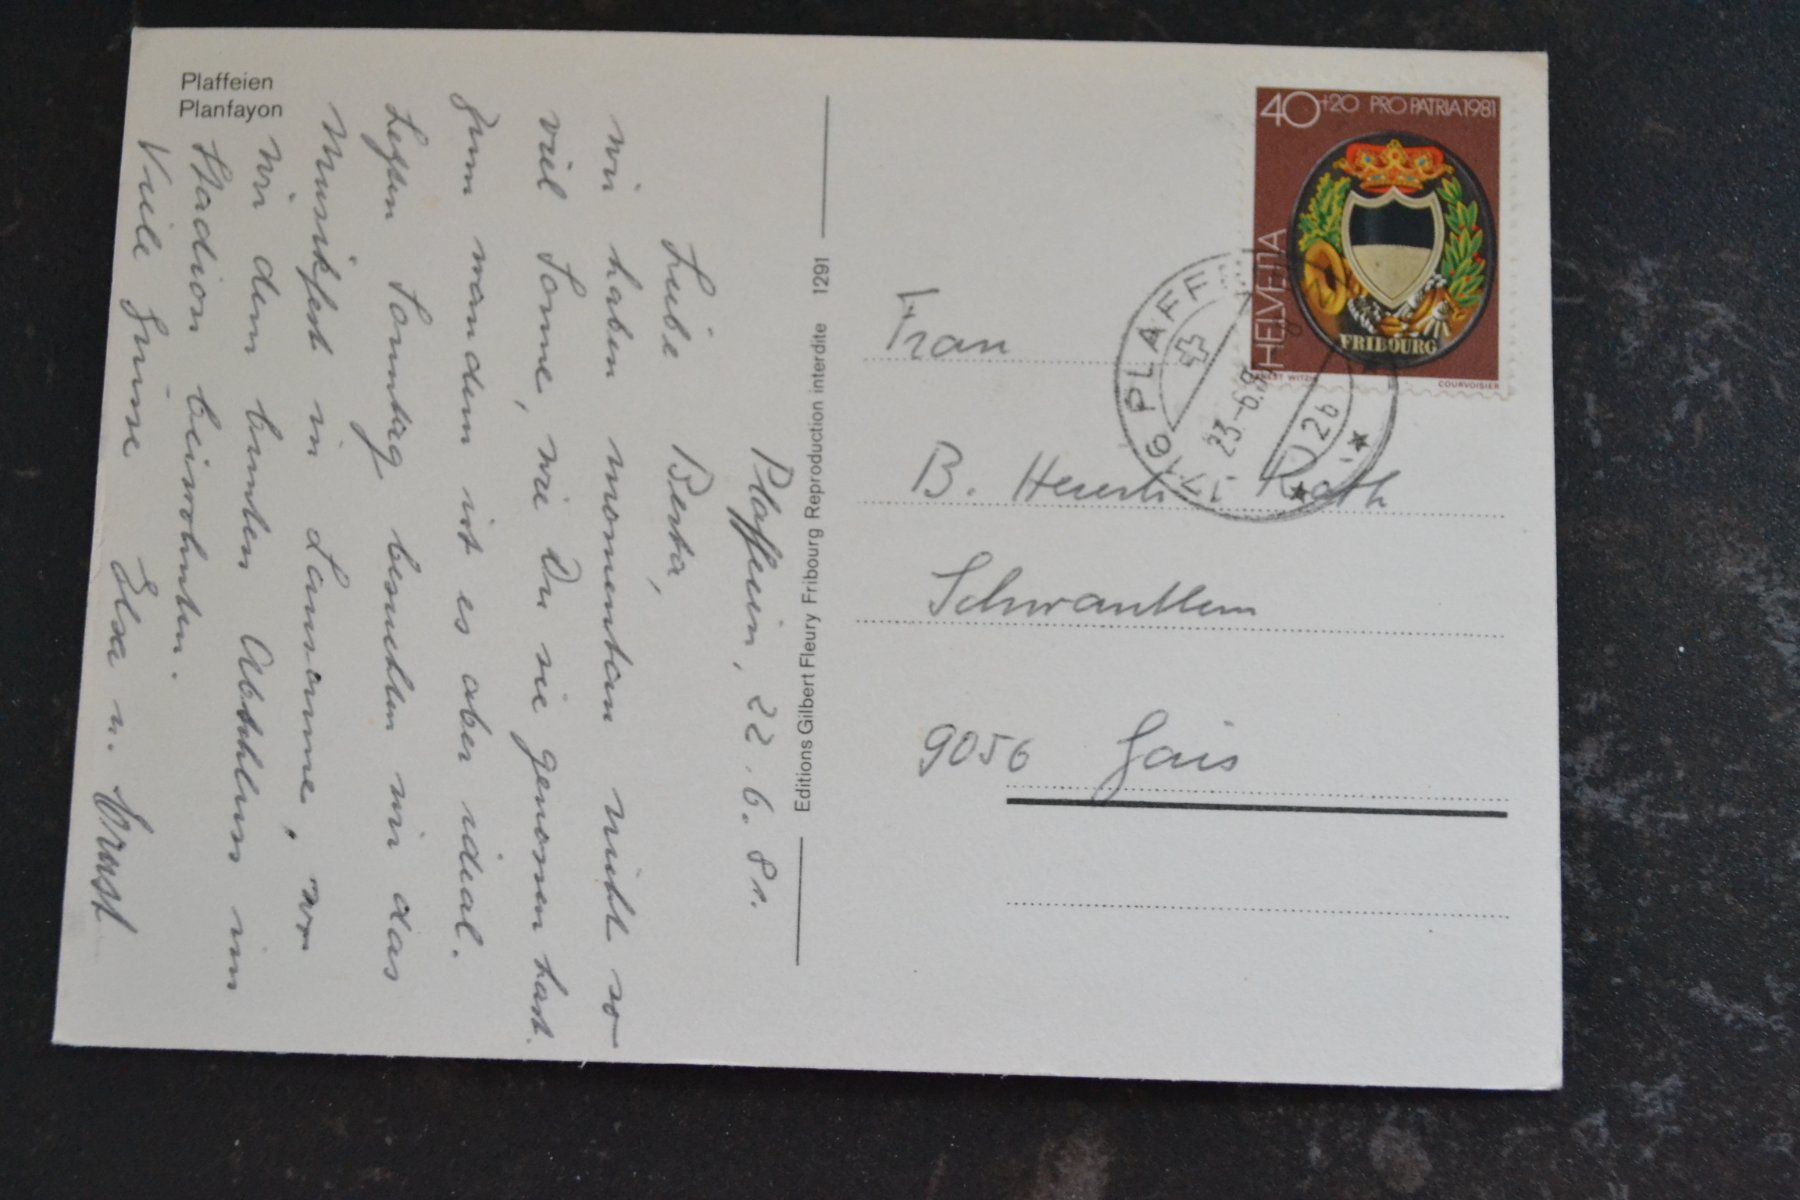 Plaffeien
Planfayon
Plaffeien, 22. 6. 81.
Liebe Berta,
wir haben momentan nicht so
viel Sonne, wie Du sie genossen hast.
Zum wandern ist es aber ideal.
Letzten Sonntag besuchten wir das
Musikfest in Lausanne, wo
wir dem bunten Abschluss im
Stadion beiwohnten.
Viele Grüsse Elsa u. Ernst
Editions Gilbert Fleury Fribourg Reproduction interdite 1291
40+20 PRO PATRIA 1981
HELVETIA
FRIBOURG
COURVOISIER
PLAFFEI
23.-6.8
Frau
B. Heierli-Roth
Schwantlern
9056 Gais